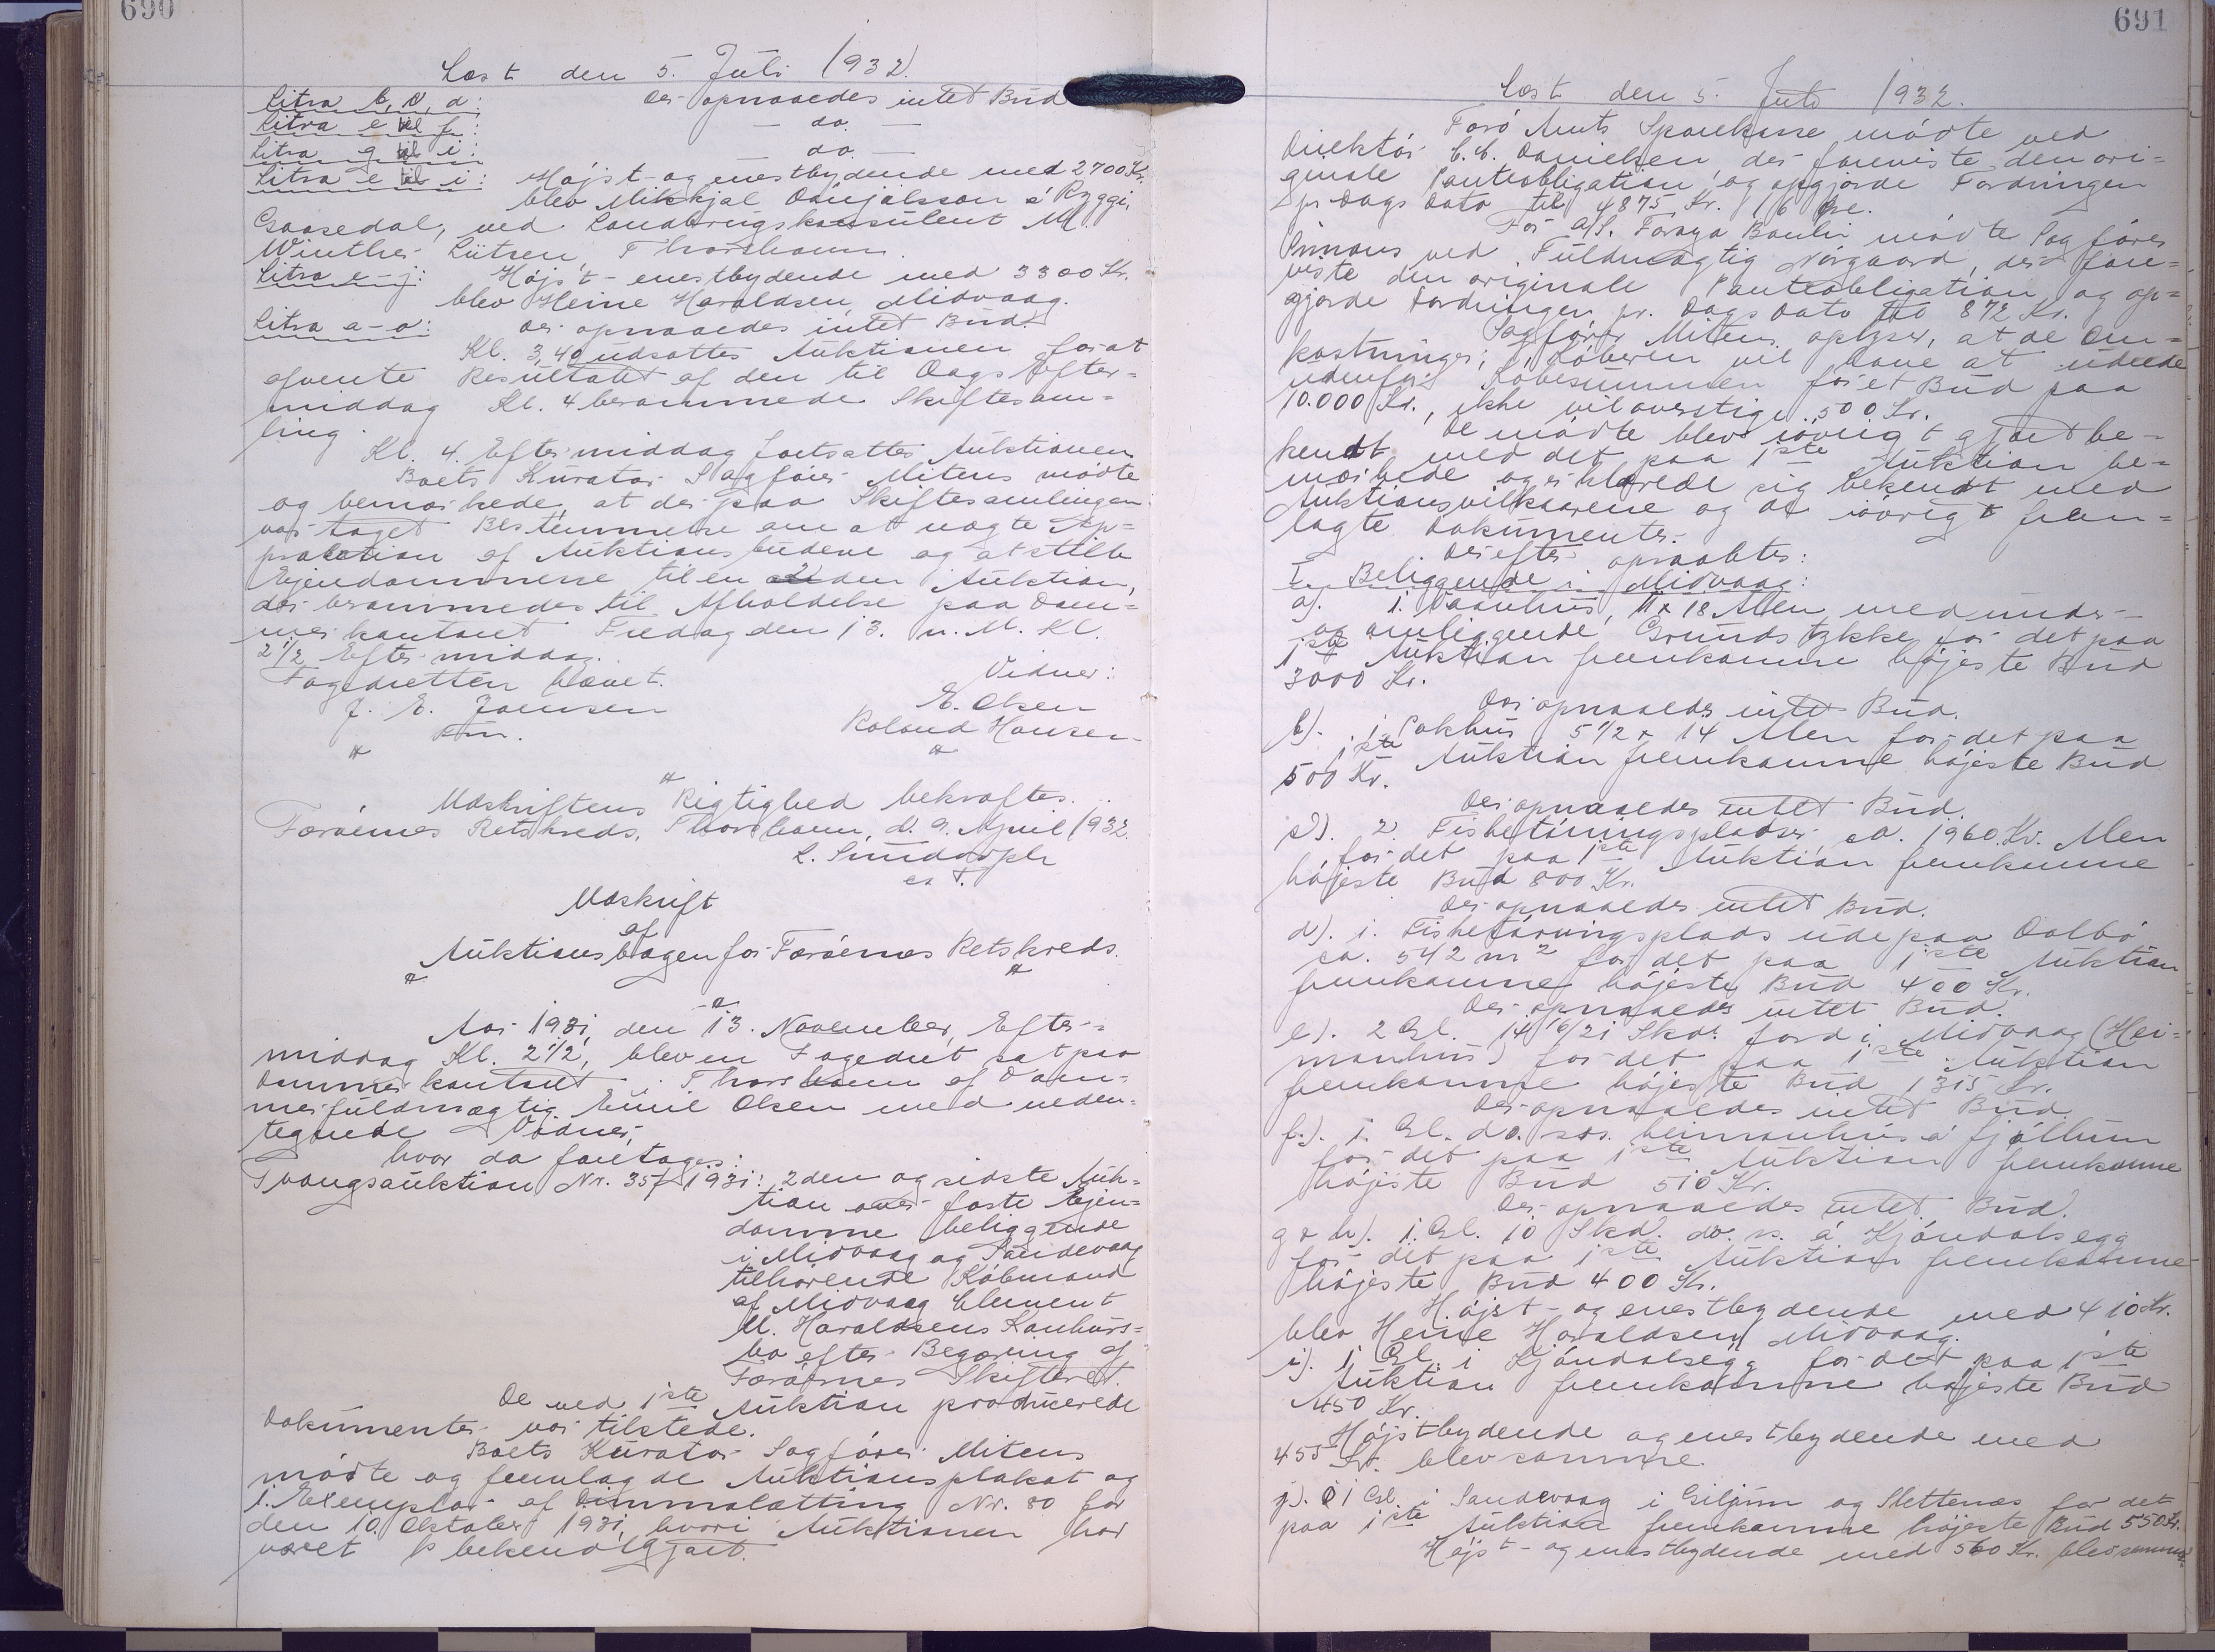 690
Læst den 5. Juli 1932.
Litra b, c, d: Der opnaaedes intet Bud
Litra e til f: — do. —
Litra g til i: — do. —
Litra e til i: Højst- og enestbydende med 2700 Kr.
blev Mikkjal Dánjalsson á Ryggi,
Gaasedal, ved Landbrugskonsulent M.
Winther Lützen, Thorshavn.
Litra e-j: Højst- enestbydende med 3300 Kr.
blev Heine Haraldsen, Midvaag.
Litra a-o: Der opnaaedes intet Bud.
Kl. 3,40 udsattes Auktionen for at
afvente Resultatet af den til Dags Efter=
middag Kl. 4 berammede Skiftesam=
ling.
Kl. 4. Eftermiddag fortsattes Auktionen
Boets Kurator Sagfører Mitens mødte
og bemærkede, at der paa Skiftesamlingen
var taget Bestemmelse om at nægte Ap=
probation af Auktionsbudene og at stille
Ejendommene til en 2den Auktion,
der berammedes til Afholdelse paa Dom=
merkontoret Fredag den 13. n. M. Kl.
2 1/2 Eftermiddag.
Fogedretten hævet. Vidner:
J. E. Joensen E. Olsen
Fm. Roland Hansen
Udskriftens Rigtighed bekræftes.
Færøernes Retskreds, Thorshavn, d. 9. April 1932.
L. Smidorph
cst.
Udskrift
af
Auktionsbogen for Færøernes Retskreds.
Aar 1931, den 13. November, Efter=
middag Kl. 2 1/2, blev en Fogedret sat paa
Dommerkontoret i Thorshavn af Dom=
merfuldmægtig Emil Olsen med neden=
tegnede Vidner,
hvor da foretages:
Tvangsauktion Nr. 357/1931: 2den og sidste Auk=
tion over faste Ejen=
domme beliggende
i Midvaag og Sandevaag
tilhørende Købmand
af Midvaag Clement
M. Haraldsens Konkurs=
bo efter Begæring af
Færøernes Skifteret.
De ved 1ste Auktion producerede
Dokumenter var tilstede.
Boets Kurator Sagfører Mitens
mødte og fremlagde Auktionsplakat og
1. Exemplar af Dimmalætting Nr. 80 for
den 10. Oktober 1931, hvori Auktionen har
været bekendtgjort.
691
Læst den 5. Juli 1932.
Færø Amts Sparekasse mødte ved
Direktør C.C. Danielsen der foreviste den ori=
ginale Panteobligation og opgjorde Fordringen
pr. Dags Dato til 4875 Kr. 16 Øre.
For A/S. Føroya Banki mødte Sagfører
Simons ved Fuldmægtig Nørgaard, der fore=
viste den originale Panteobligation og op=
gjorde Fordringen pr. Dags Dato til 872 Kr.
Sagfører Mitens oplyser, at de Om=
kostninger, Køberen vil have at udrede
udenfor Købesummen for et Bud paa
10.000 Kr., ikke vil overstige 500 Kr.
De mødte blev iøvrigt gjort be=
kendt med det paa 1ste Auktion be=
mærkede og erklærede sig bekendt med
Auktionsvilkaarene og de iøvrigt frem=
lagte Dokumenter.
Derefter opraabtes:
I. Beliggende i Midvaag:
a). 1. Vaanhus, 11 x 18 Alen med under-
og omliggende Grundstykke for det paa
1ste Auktion fremkomne højeste Bud
3000 Kr.
Der opnaaedes intet Bud.
b). 1. Pakhus 5 1/2 x 14 Alen for det paa
1ste Auktion fremkomne højeste Bud
500 Kr.
Der opnaaedes intet Bud.
c). 2 Fisketørringspladser, ca. 1960 Kv. Alen
for det paa 1ste Auktion fremkomne
højeste Bud 800 Kr.
Der opnaaedes intet Bud.
d). 1. Fisketørringsplads ude paa Dalbø
ca. 542 m² for det paa 1ste Auktion
fremkomne højeste Bud 400 Kr.
Der opnaaedes intet Bud.
e). 2 Gl. 14 16/21 Skd. Jord i Midvaag (Hei=
manhús) for det paa 1ste Auktion
fremkomne højeste Bud 1315 Kr.
Der opnaaedes intet Bud.
f.). 1. Gl. do. sts. heimanhús á Fjøllum
for det paa 1ste Auktion fremkomne
højeste Bud 510 Kr.
Der opnaaedes intet Bud.
g & h). 1. Gl. 10 Skd. do. n. á Kjóndalsegg
for det paa 1ste Auktion fremkomne
højeste Bud 400 Kr.
Højst- og enestbydende med 410 Kr.
blev Heine Haraldsen, Midvaag.
i). 1 Gl. i Kjóndalsegg for det paa 1ste
Auktion fremkomne højeste Bud
450 Kr.
Højstbydende og enestbydende med
455 Kr. blev samme.
j). 1 Gl. i Sandevaag i Giljum og Slettenæs for det
paa 1ste Auktion fremkomne højeste Bud 550 Kr.
Højst- og enestbydende med 560 Kr. blev samme.